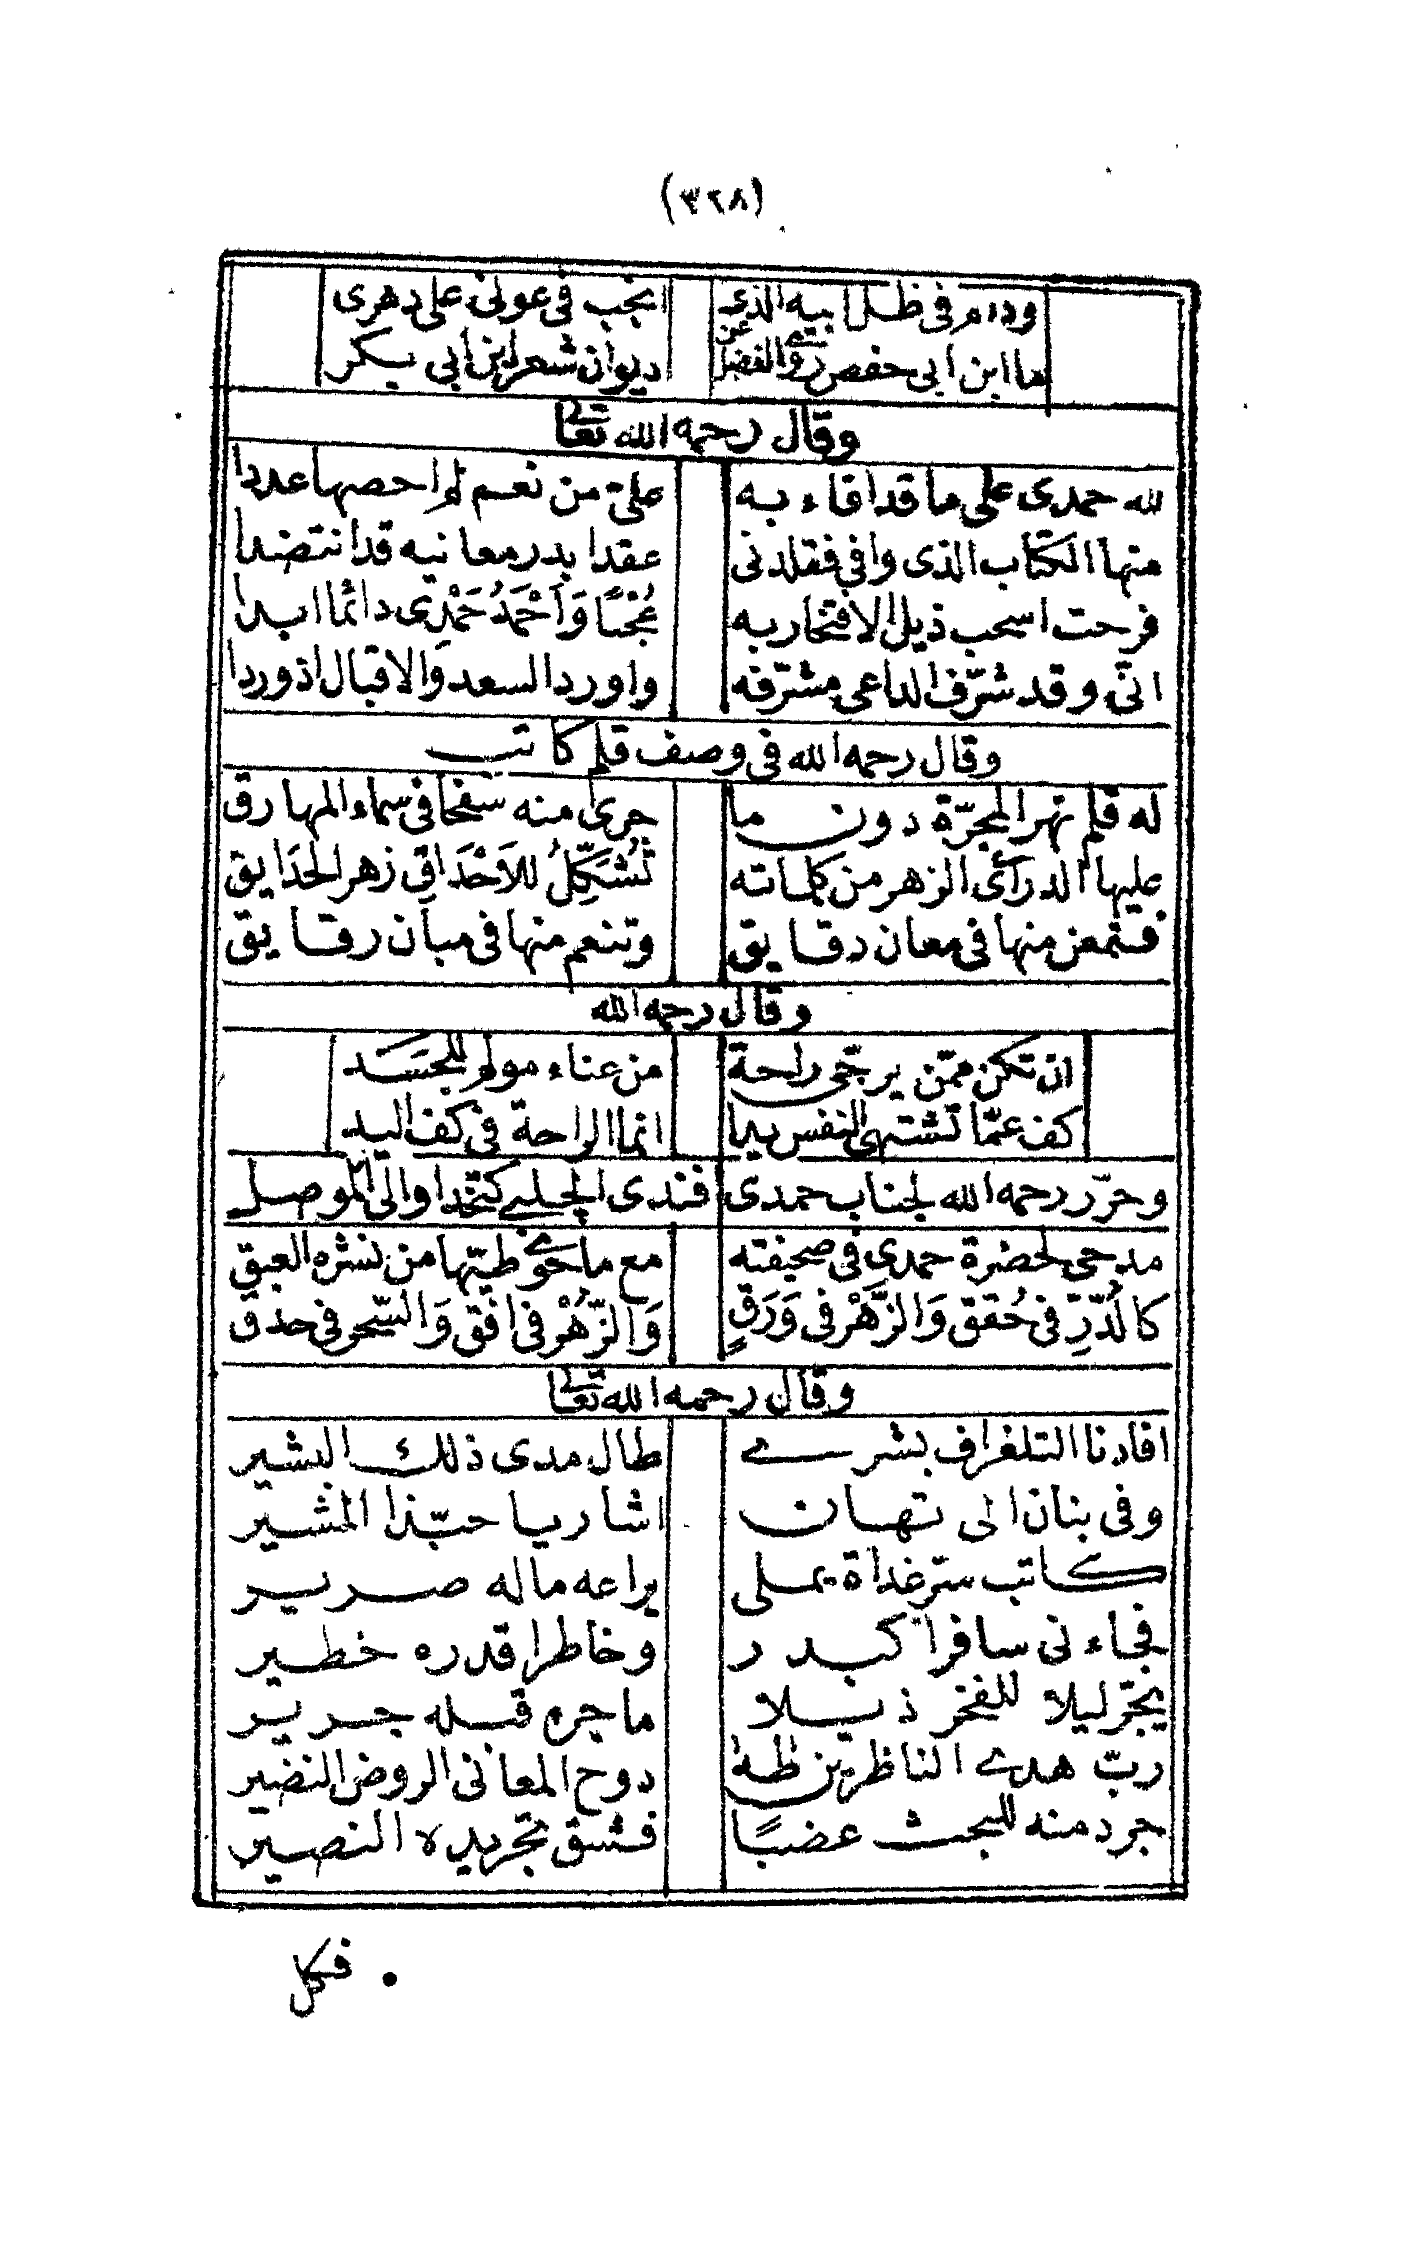 (٣٢٨)
ودام في ظل ابيه الذي انجب في عوني على دهري
ما ابن ابي حفص روى الفضل عن ديوان شعر ابن ابي بكر
وقال رحمه الله تعالى
لله حمدى على ما قد افاء به علىّ من نعم لم احصها عددا
منها الكتاب الذى وافي فقلدنى عقدا بدر معانيه قد انتضدا
فرحت اسحب ذيل الافتخار به عُجْبًا وَاَحْمَدُ حَمْدِى دائما ابدا
انّى وقد شرّف الداعى مشرّفه واورد السعد والاقبال اذ وردا
وقال رحمه الله في وصف قلم كاتب
له قلم نهر المجرّة دون ما جرى منه سفحا في سماء المهارق
عليها الدرارى الزهر من كلماته تُشَكِّلُ للاَحْدَاقِ زهر الحَدَايق
فتمعن منها في معان دقايق وتنعم منها في مبان رقايق
وقال رحمه الله
ان تكن ممّن يرجّى راحة من عناء مولم للجسد
كف عمّا تشتهى النفس بها انما الراحة في كف اليد
وحرّر رحمه الله لجناب حمدى افندى الجلبي كتخدا والى الموصل
مدحى لحضرة حمدى في صحيفته مع ما حوى طيّها من نشره العبق
كالدُّرِّ في حُقق وَالزَّهْر في وَرَقٍ وَالزُّهْر في افق وَالسّحر في حدق
وقال رحمه الله تعالى
افادنا التلغراف بشرى طال مدى ذلك البشير
وفي بنان الى تهان اشار يا حبّذا المشير
كاتب سرّ غداة يملى يراعه ماله صرير
فجاءنى سافرا كبدر وخاطرا قدره خطير
يجرّ ليلا للفخر ذيلا ما جره قبله جرير
ربّ هدى الناظرين طه دوح المعانى الروض النضير
جرد منه للبحث عضبًا فشق تجريده النصير
فكل